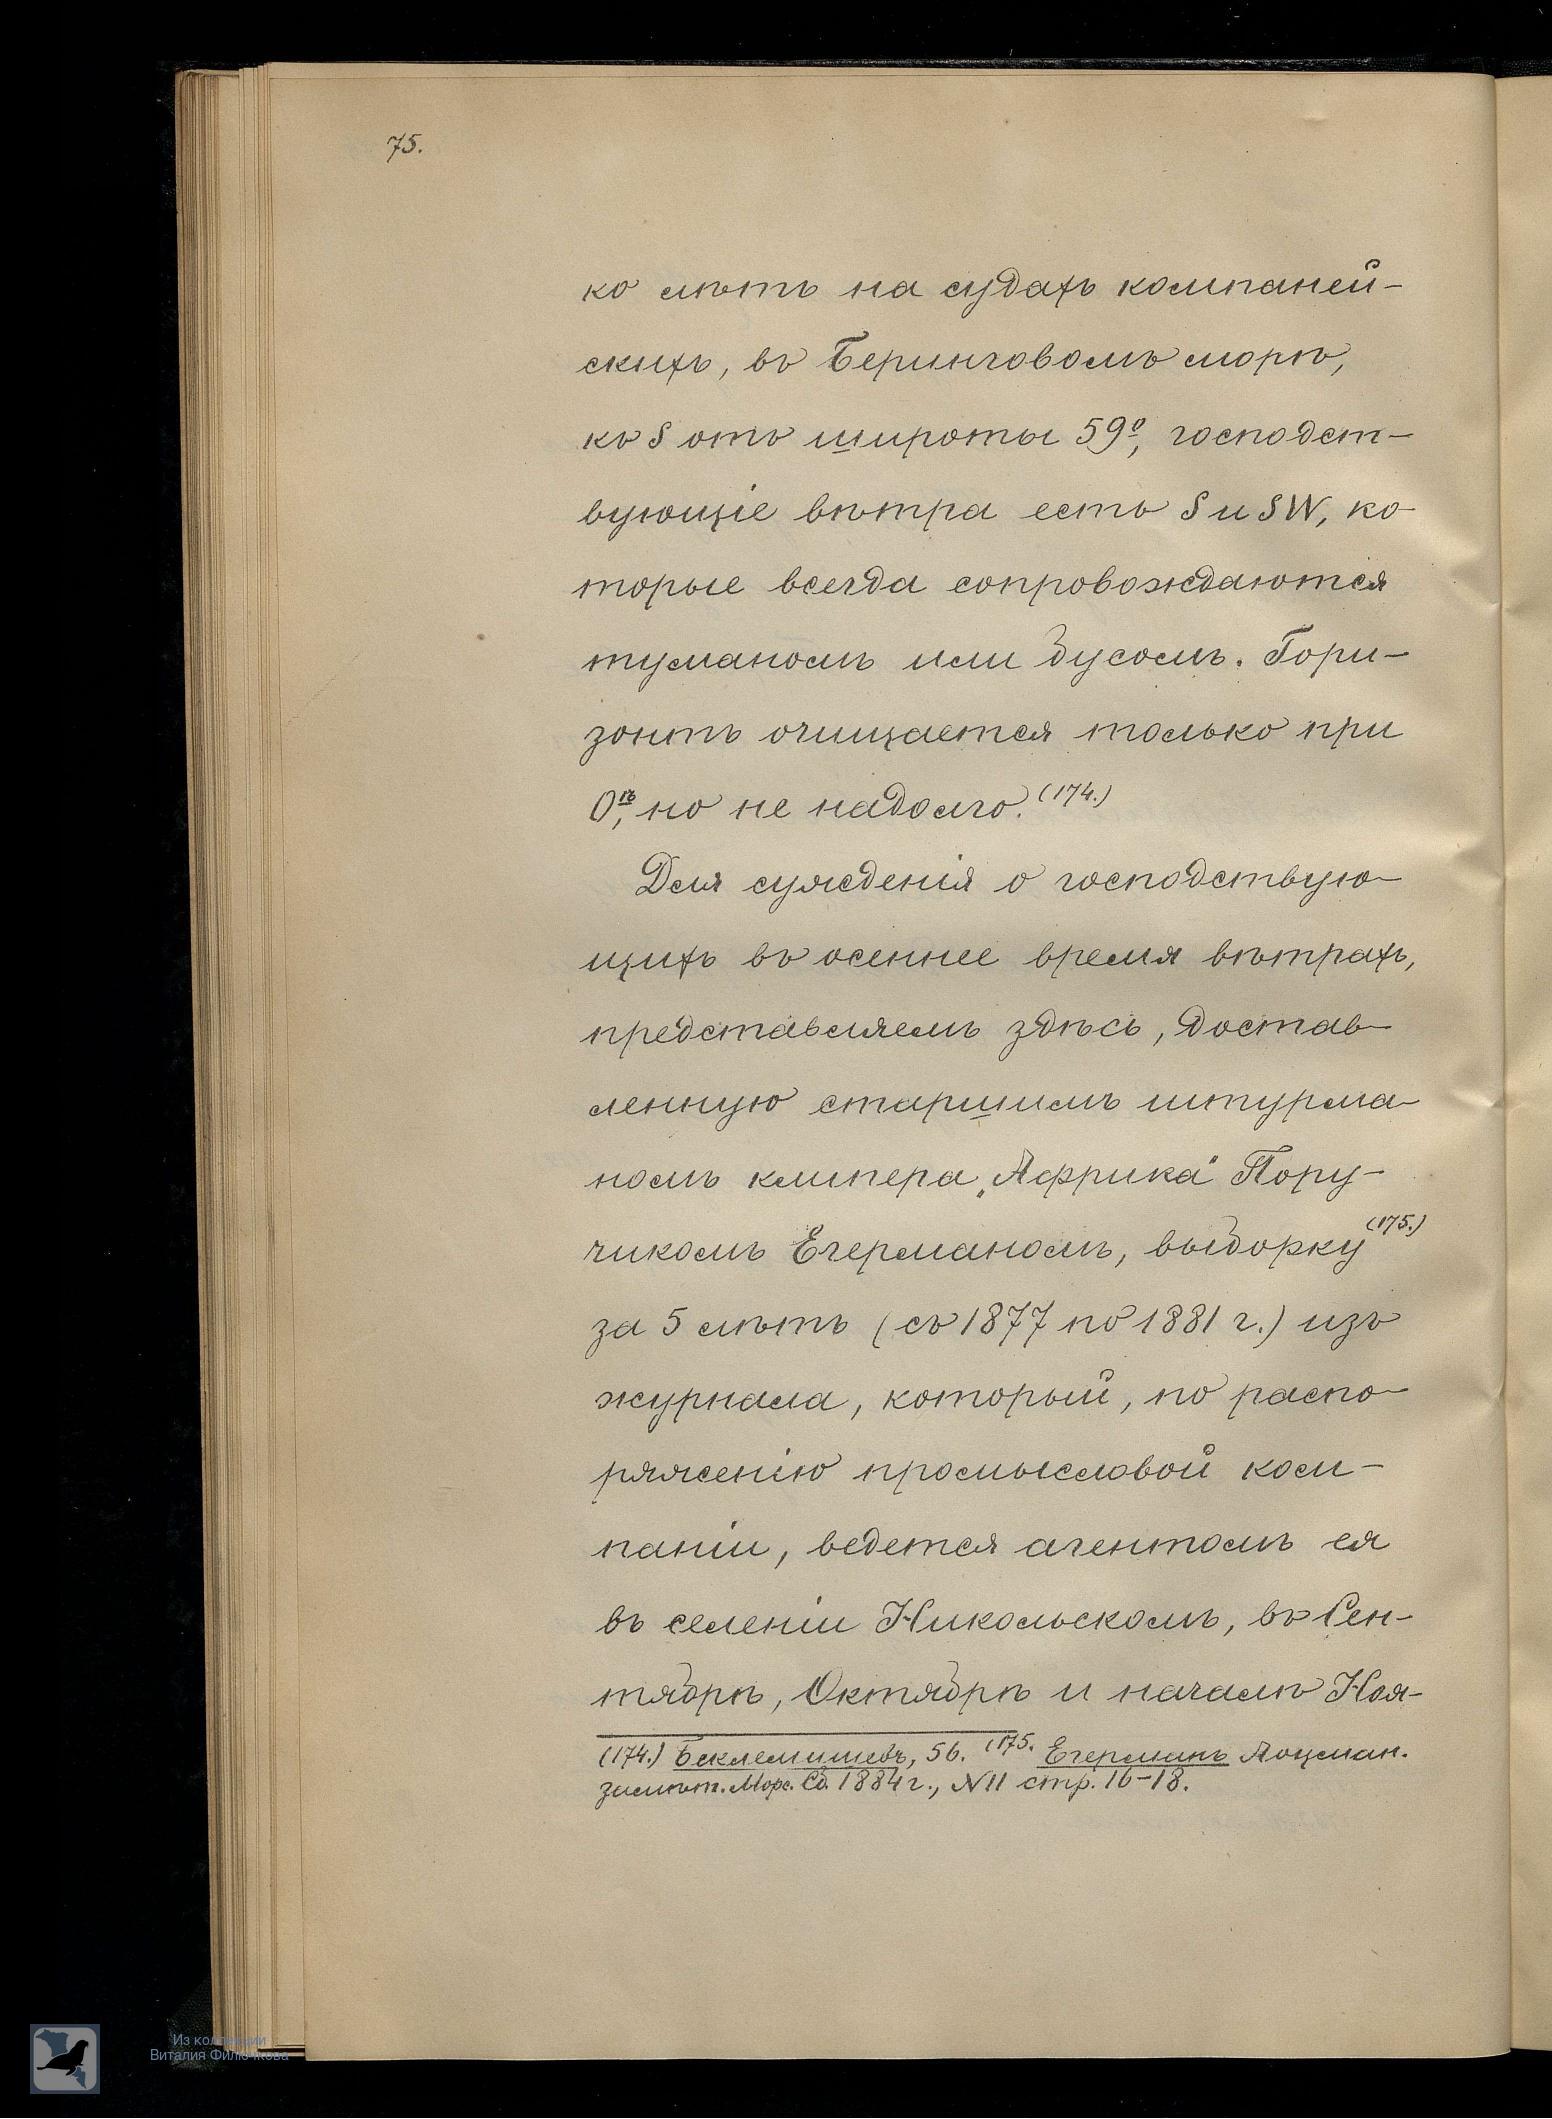 75.
ко лѣтъ на судахъ компаней-
скихъ, въ Беринговомъ морѣ,
къ S отъ широты 59º, господст-
вующіе вѣтра есть S и SW, ко-
торые всегда сопровождаются
туманомъ или бусомъ. Гори-
зонтъ очищается только при
Oѣ, но не надолго. (174.)
Для сужденія о господствую-
щихъ въ осеннее время вѣтрахъ,
представляемъ здѣсь, достав-
ленную старшимъ штурма-
номъ клипера „Африка“ Пору-
чикомъ Егерманомъ, выборку (175.)
за 5 лѣтъ (съ 1877 по 1881 г.) изъ
журнала, который, по распо-
ряженію промысловой ком-
паніи, ведется агентомъ ея
въ селеніи Никольскомъ, въ Сен-
тябрѣ, Октябрѣ и началѣ Ноя-
(174.) Беклемишевъ, 56. (175. Егерманъ Лоцман.
замѣт. Морс. Сб. 1884 г., N11 стр. 16-18.
Из коллекции
Виталия Филючкова